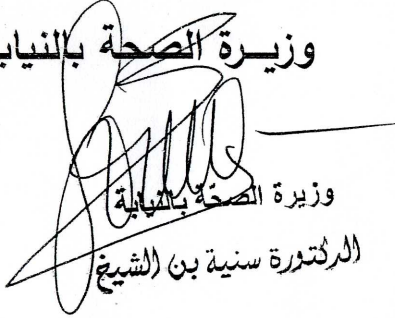 وزيـرة الصحة بالنيابة
وزيرة الصحّة بالنيابة
الدكتورة سنية بن الشيخ